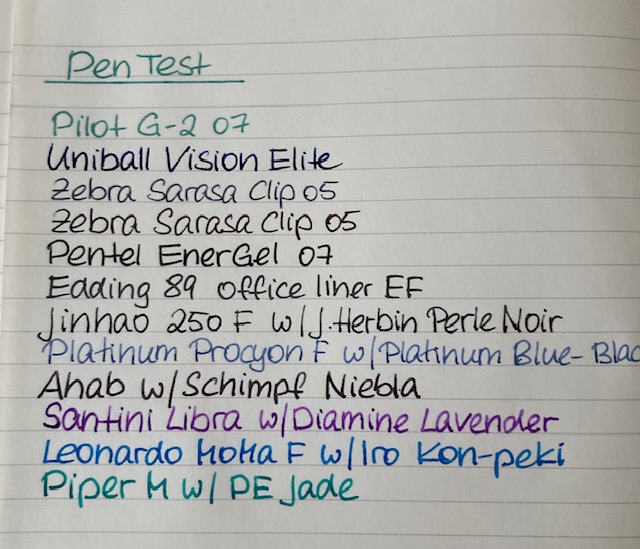 Pen Test
Pilot G-2 07
Uniball Vision Elite
Zebra Sarasa Clip 05
Zebra Sarasa Clip 05
Pentel EnerGel 07
Edding 89 office liner EF
Jinhao 250 F w/J.Herbin Perle Noir
Platinum Procyon F w/Platinum Blue-Blac
Ahab w/Schimpf Niebla
Santini Libra w/Diamine Lavender
Leonardo MoMa F w/Iro Kon-peki
Piper M w/ PE Jade